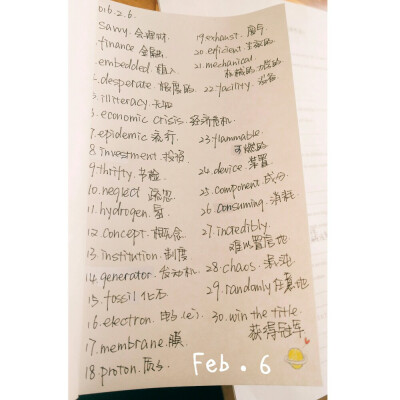 016.2.6.
savvy. 会理财
finance 金融
embedded. 植入
desperate 极度的
5. illiteracy. 文盲
6. economic crisis. 经济危机
7. epidemic 流行
8. investment. 投资
9. thrifty. 节俭
10. neglect 疏忽
11. hydrogen. 氢
12. concept. 概念
13. institution. 制度
14. generator. 发动机
15. fossil 化石
16. electron. 电子(e⁻)
17. membrane. 膜
18. proton. 质子
19. exhaust. 废气
20. efficient 有效的
21. mechanical.
机械的.力学的
22. facility. 设备
23. flammable.
可燃的
24. device. 装置
25. component 成分
26. consuming. 消耗
27. incredibly.
难以置信地
28. chaos. 混沌
29. randomly 任意地
30. win the title.
获得冠军
Feb. 6